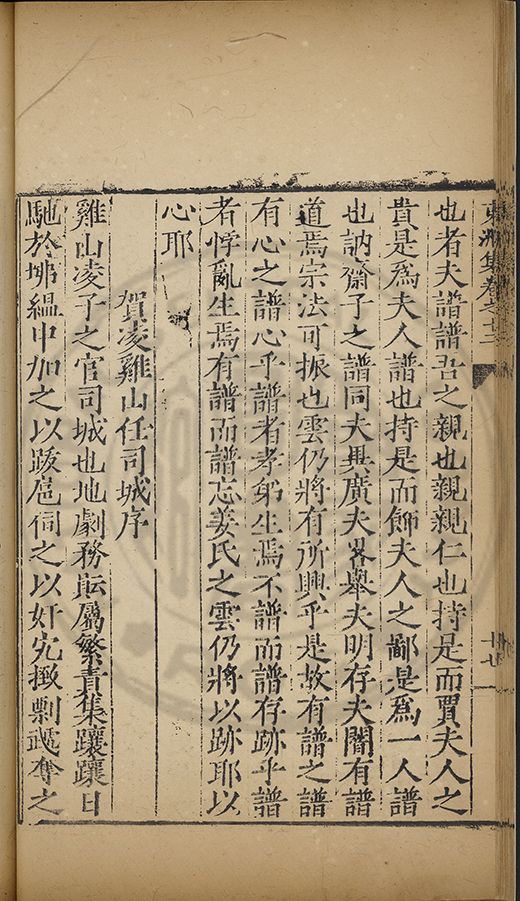 東洲集卷之十二
十七
也者夫譜譜吾之親也親親仁也持是而買夫人之
貴是為夫人譜也持是而飾夫人之鄙是為一人譜
也訥齋子之譜同夫異廣夫畧舉夫明存夫闇有譜
道焉宗法可振也雲仍將有所興乎是故有譜之譜
有心之譜心乎譜者孝弟生焉不譜而譜存跡乎譜
者悖亂生焉有譜而譜忘姜氏之雲仍將以跡耶以
心耶
賀凌雞山任司城序
雞山凌子之官司城也地劇務耘屬繁責集躟躟日
馳於坲縕中加之以跋扈伺之以奸宄撽剽遞奪之